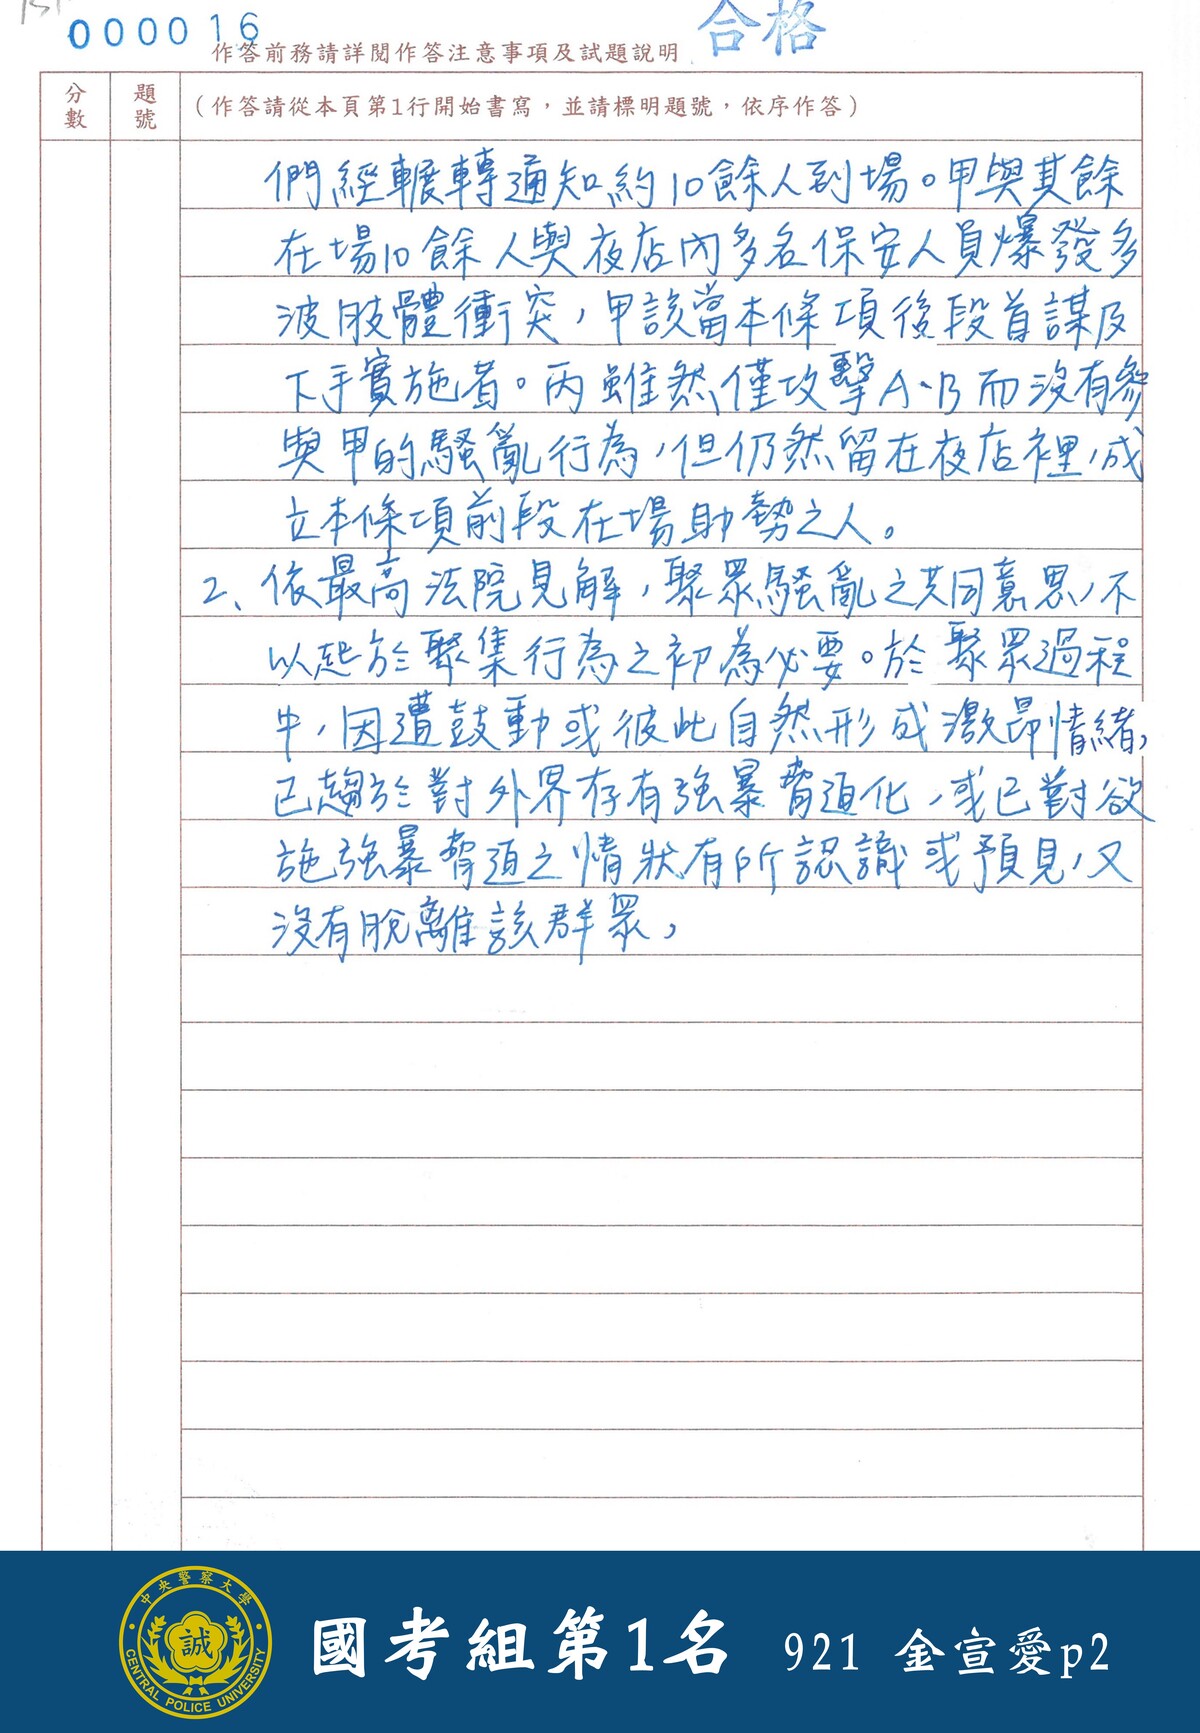 000016
合格
作答前務請詳閱作答注意事項及試題說明
分數
題號
（作答請從本頁第1行開始書寫，並請標明題號，依序作答）
們經輾轉通知約10餘人到場。甲與其餘
在場10餘人與夜店內多名保安人員爆發多
波肢體衝突，甲該當本條項後段首謀及
下手實施者。丙雖然僅攻擊A、B而沒有參
與甲的騷亂行為，但仍然留在夜店裡，成
立本條項前段在場助勢之人。
2、依最高法院見解，聚眾騷亂之共同意思，不
以起於聚集行為之初為必要。於聚眾過程
中，因遭鼓動或彼此自然形成激昂情緒，
已趨於對外界存有強暴脅迫化，或已對欲
施強暴脅迫之情狀有所認識或預見，又
沒有脫離該群眾，
中央警察大學
誠
CENTRAL POLICE UNIVERSITY
國考組第1名 921 金宣愛p2